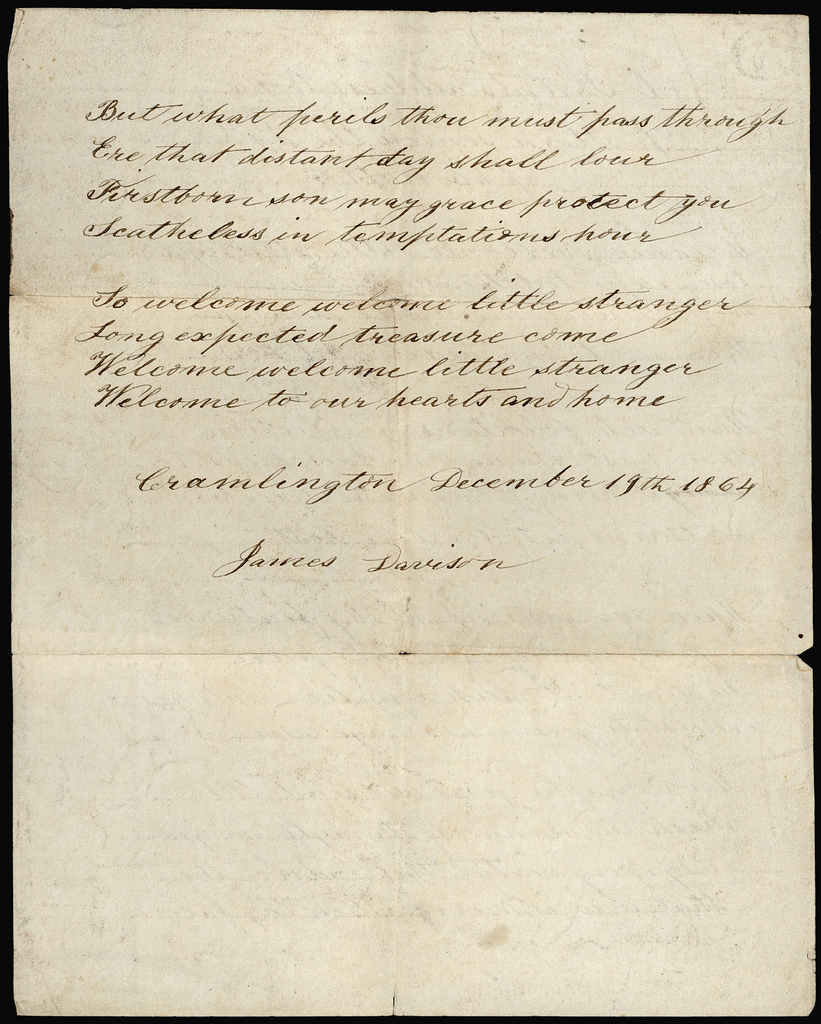 But what perils thou must pass through
Ere that distant day shall lour
Firstborn son may grace protect you
Scatheless in temptations hour
So welcome welcome little stranger
Long expected treasure come
Welcome welcome little stranger
Welcome to our hearts and home
Cramlington December 19th 1864
James Davison